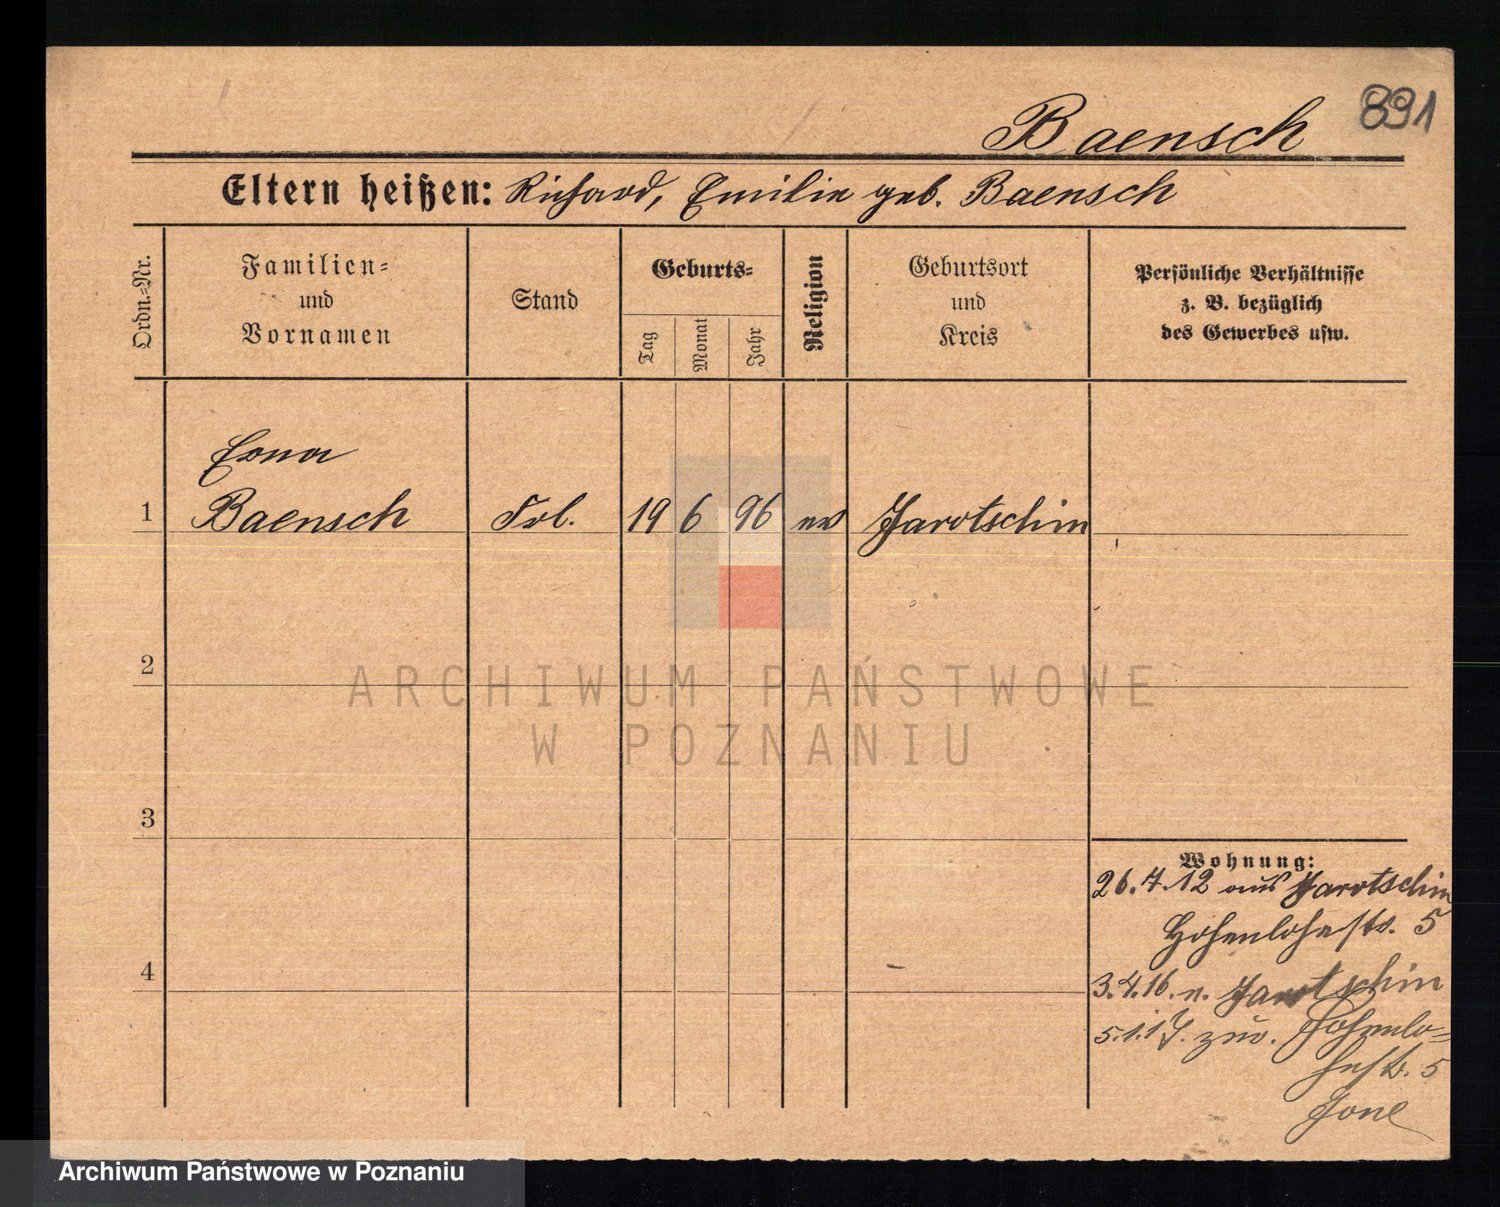 891
Baensch
Eltern heißen: Richard, Emilie geb. Baensch
Ordn.-Nr.
Familien-
und
Vornamen
Stand
Geburts-
Tag
Monat
Jahr
Religion
Geburtsort
und
Kreis
Persönliche Verhältnisse
z. B. bezüglich
des Gewerbes usw.
Erna
1 Baensch Frl. 19 6 96 ev Jarotschin
2
3
4
Wohnung:
26.7.12 aus Jarotschin
Hohenlohestr. 5
3.4.16. n. Jarotschin
5.1.17. zur. Hohenlo-
hestr. 5
ARCHIWUM PAŃSTWOWE
W POZNANIU
Archiwum Państwowe w Poznaniu